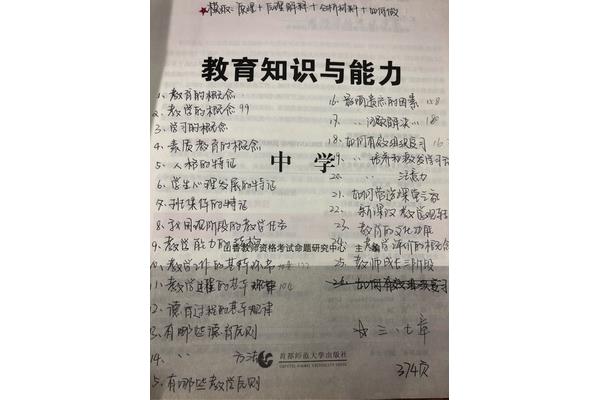 ★模板：原理+原理解释+分析材料+如何做
教育知识与能力
中学
山香教师资格考试命题研究中心 主编
首都师范大学出版社
CAPITAL NORMAL UNIVERSITY PRESS
1、教育的概念
2、教学的概念 99
3、学习的概念
4、素质教育的概念
5、人格的特征
6、学生心理发展的特征
7、班集体的特征
8、我国现阶段的教学任务
9、教学能力的结构
10、教学工作的基本环节
11、教学过程的基本规律 104
12、德育过程的基本规律
13、有哪些德育原则
14、 〃 〃 方法
15、有哪些教学原则
16、影响遗忘的因素 158
17、 〃 问题解决 〃 180
18、如何有效组织复习 16
19、 〃 培养和激发学习动
20、 〃 注意力
21、如何营造课堂
22、新课改教学观
23、教育的文化功能
24、教学评价的概念
25、教师成长三阶段
26、如何有效组织复习
☆ 三、七章
374页